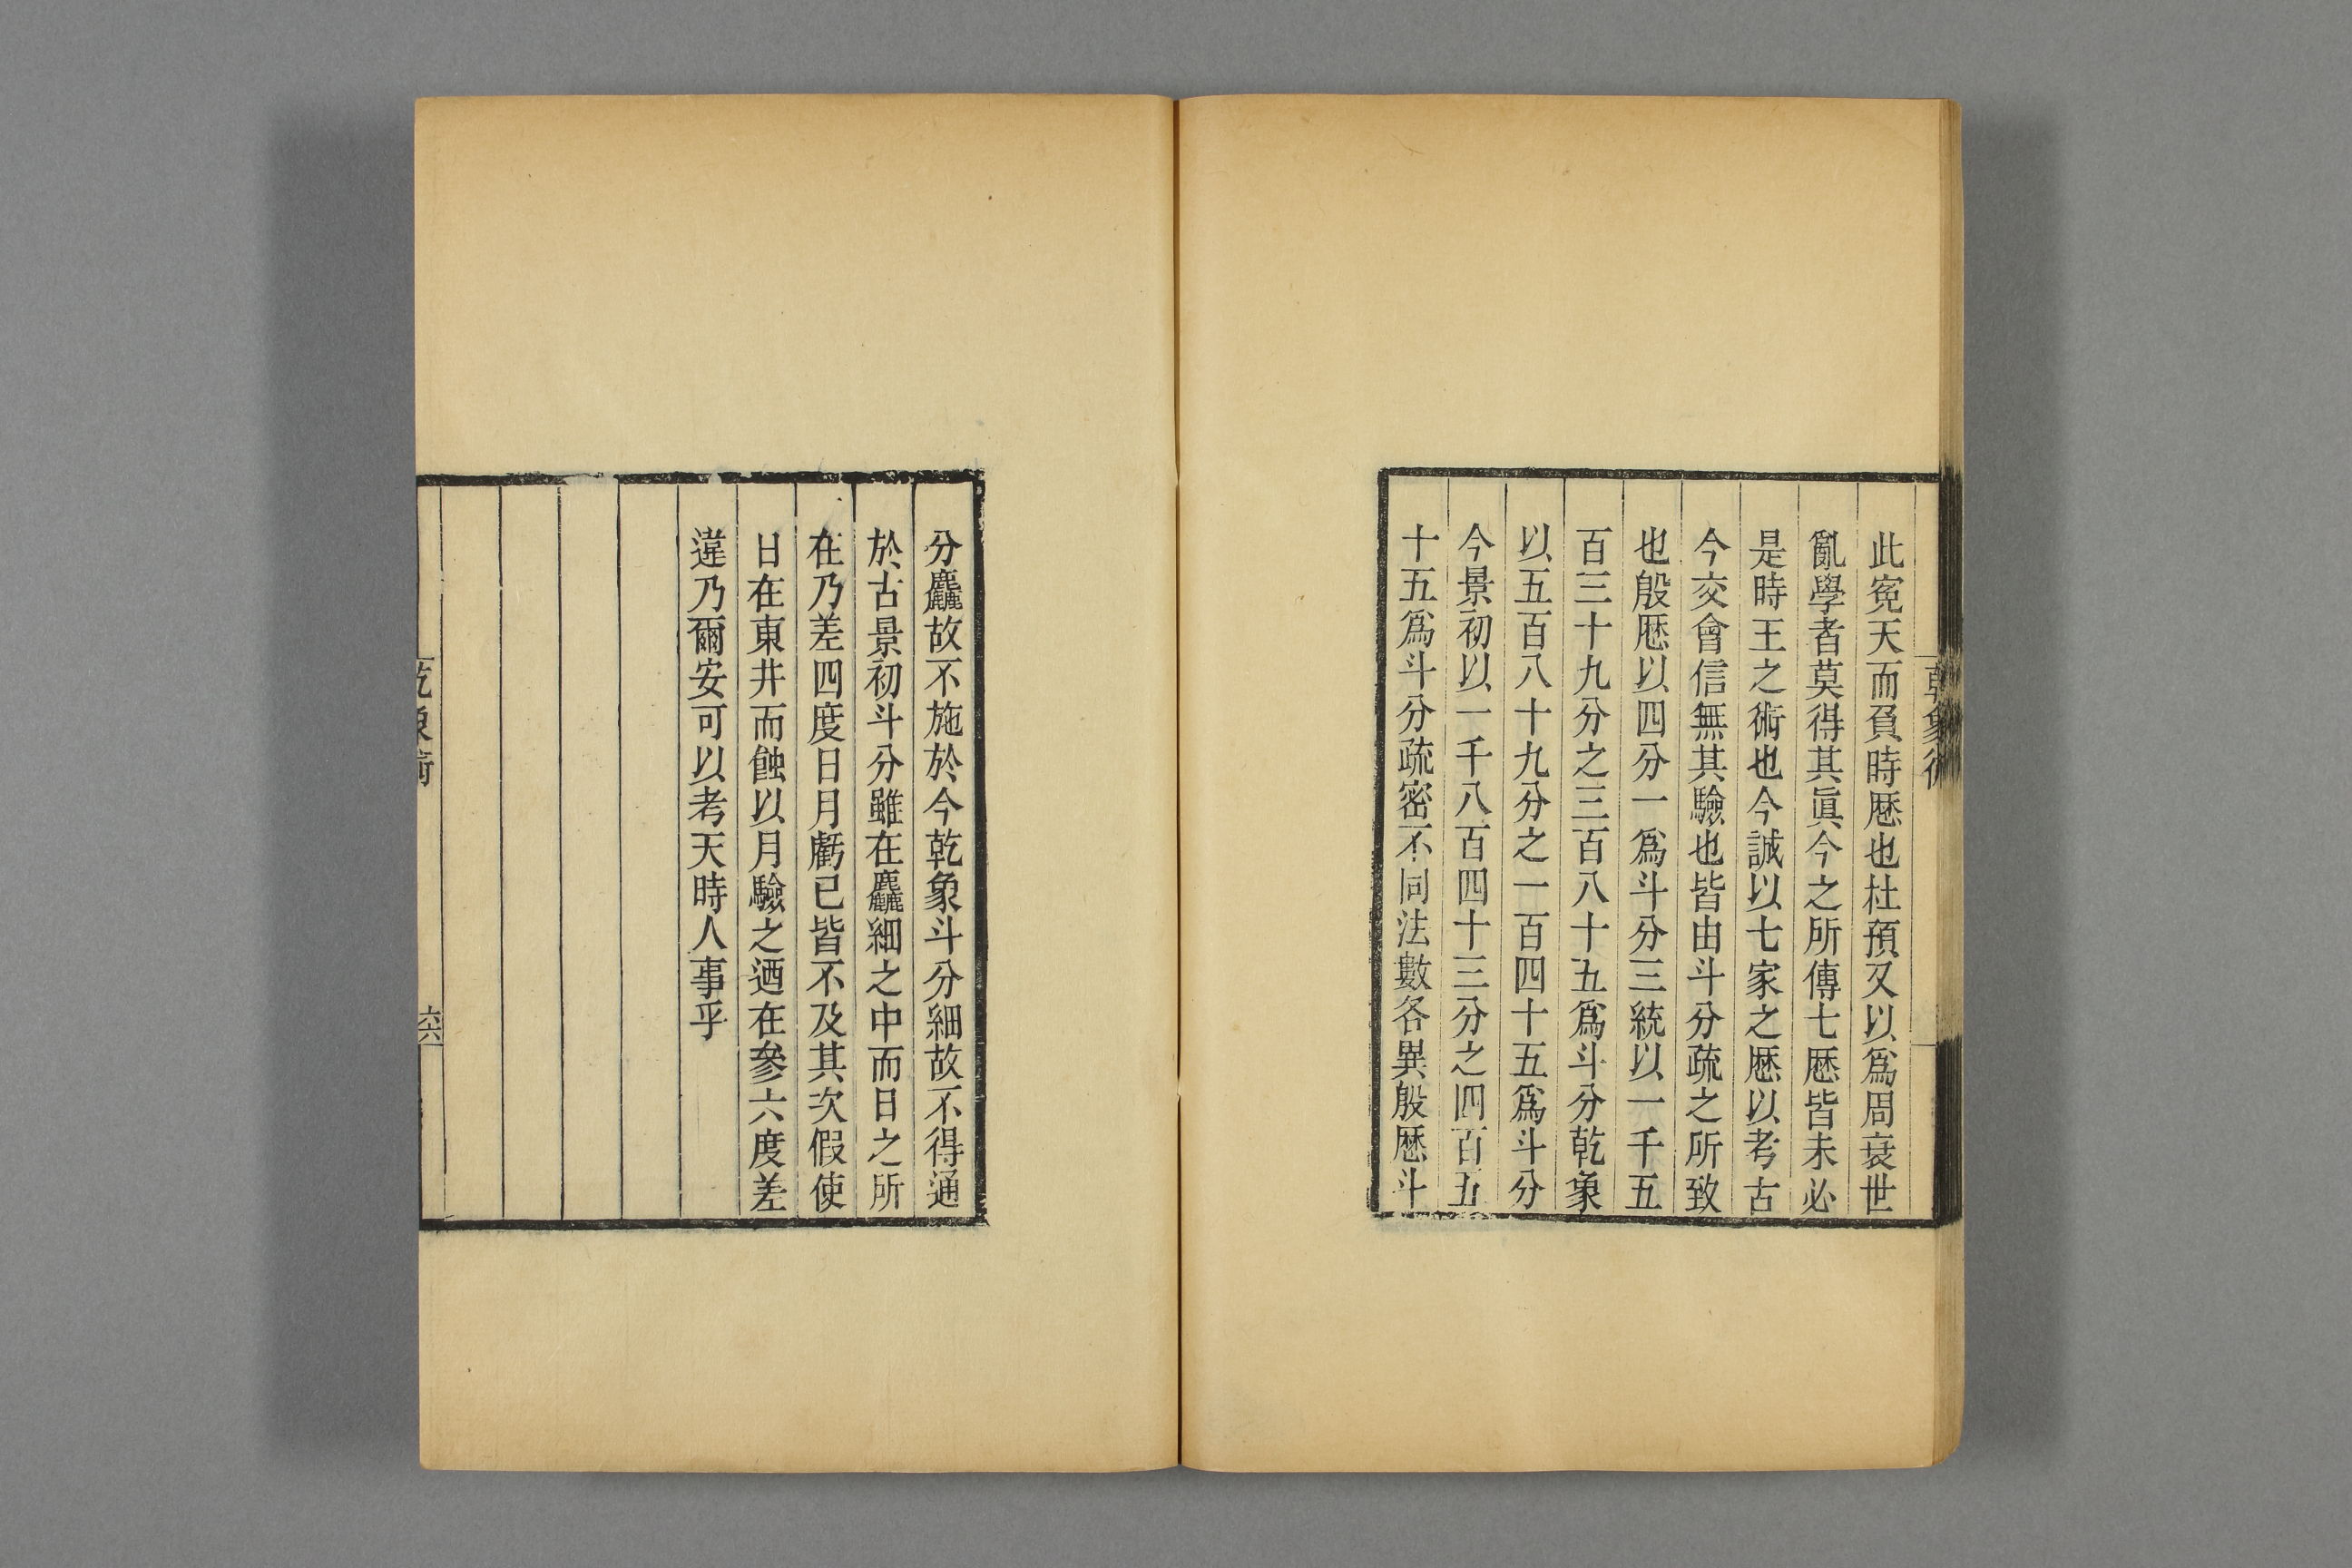 此寃天而負時厯也杜預又以爲周衰世
亂學者莫得其眞今之所傳七厯皆未必
是時王之術也今誠以七家之厯以考古
今交會信無其驗也皆由斗分疏之所致
也殷厯以四分一爲斗分三統以一千五
百三十九分之三百八十五爲斗分乾象
以五百八十九分之一百四十五爲斗分
今景初以一千八百四十三分之四百五
十五爲斗分疏密不同法數各異殷厯斗
分麤故不施於今乾象斗分細故不得通
於古景初斗分雖在麤細之中而日之所
在乃差四度日月虧已皆不及其次假使
日在東井而蝕以月驗之迺在參六度差
違乃爾安可以考天時人事乎
乾象術
六